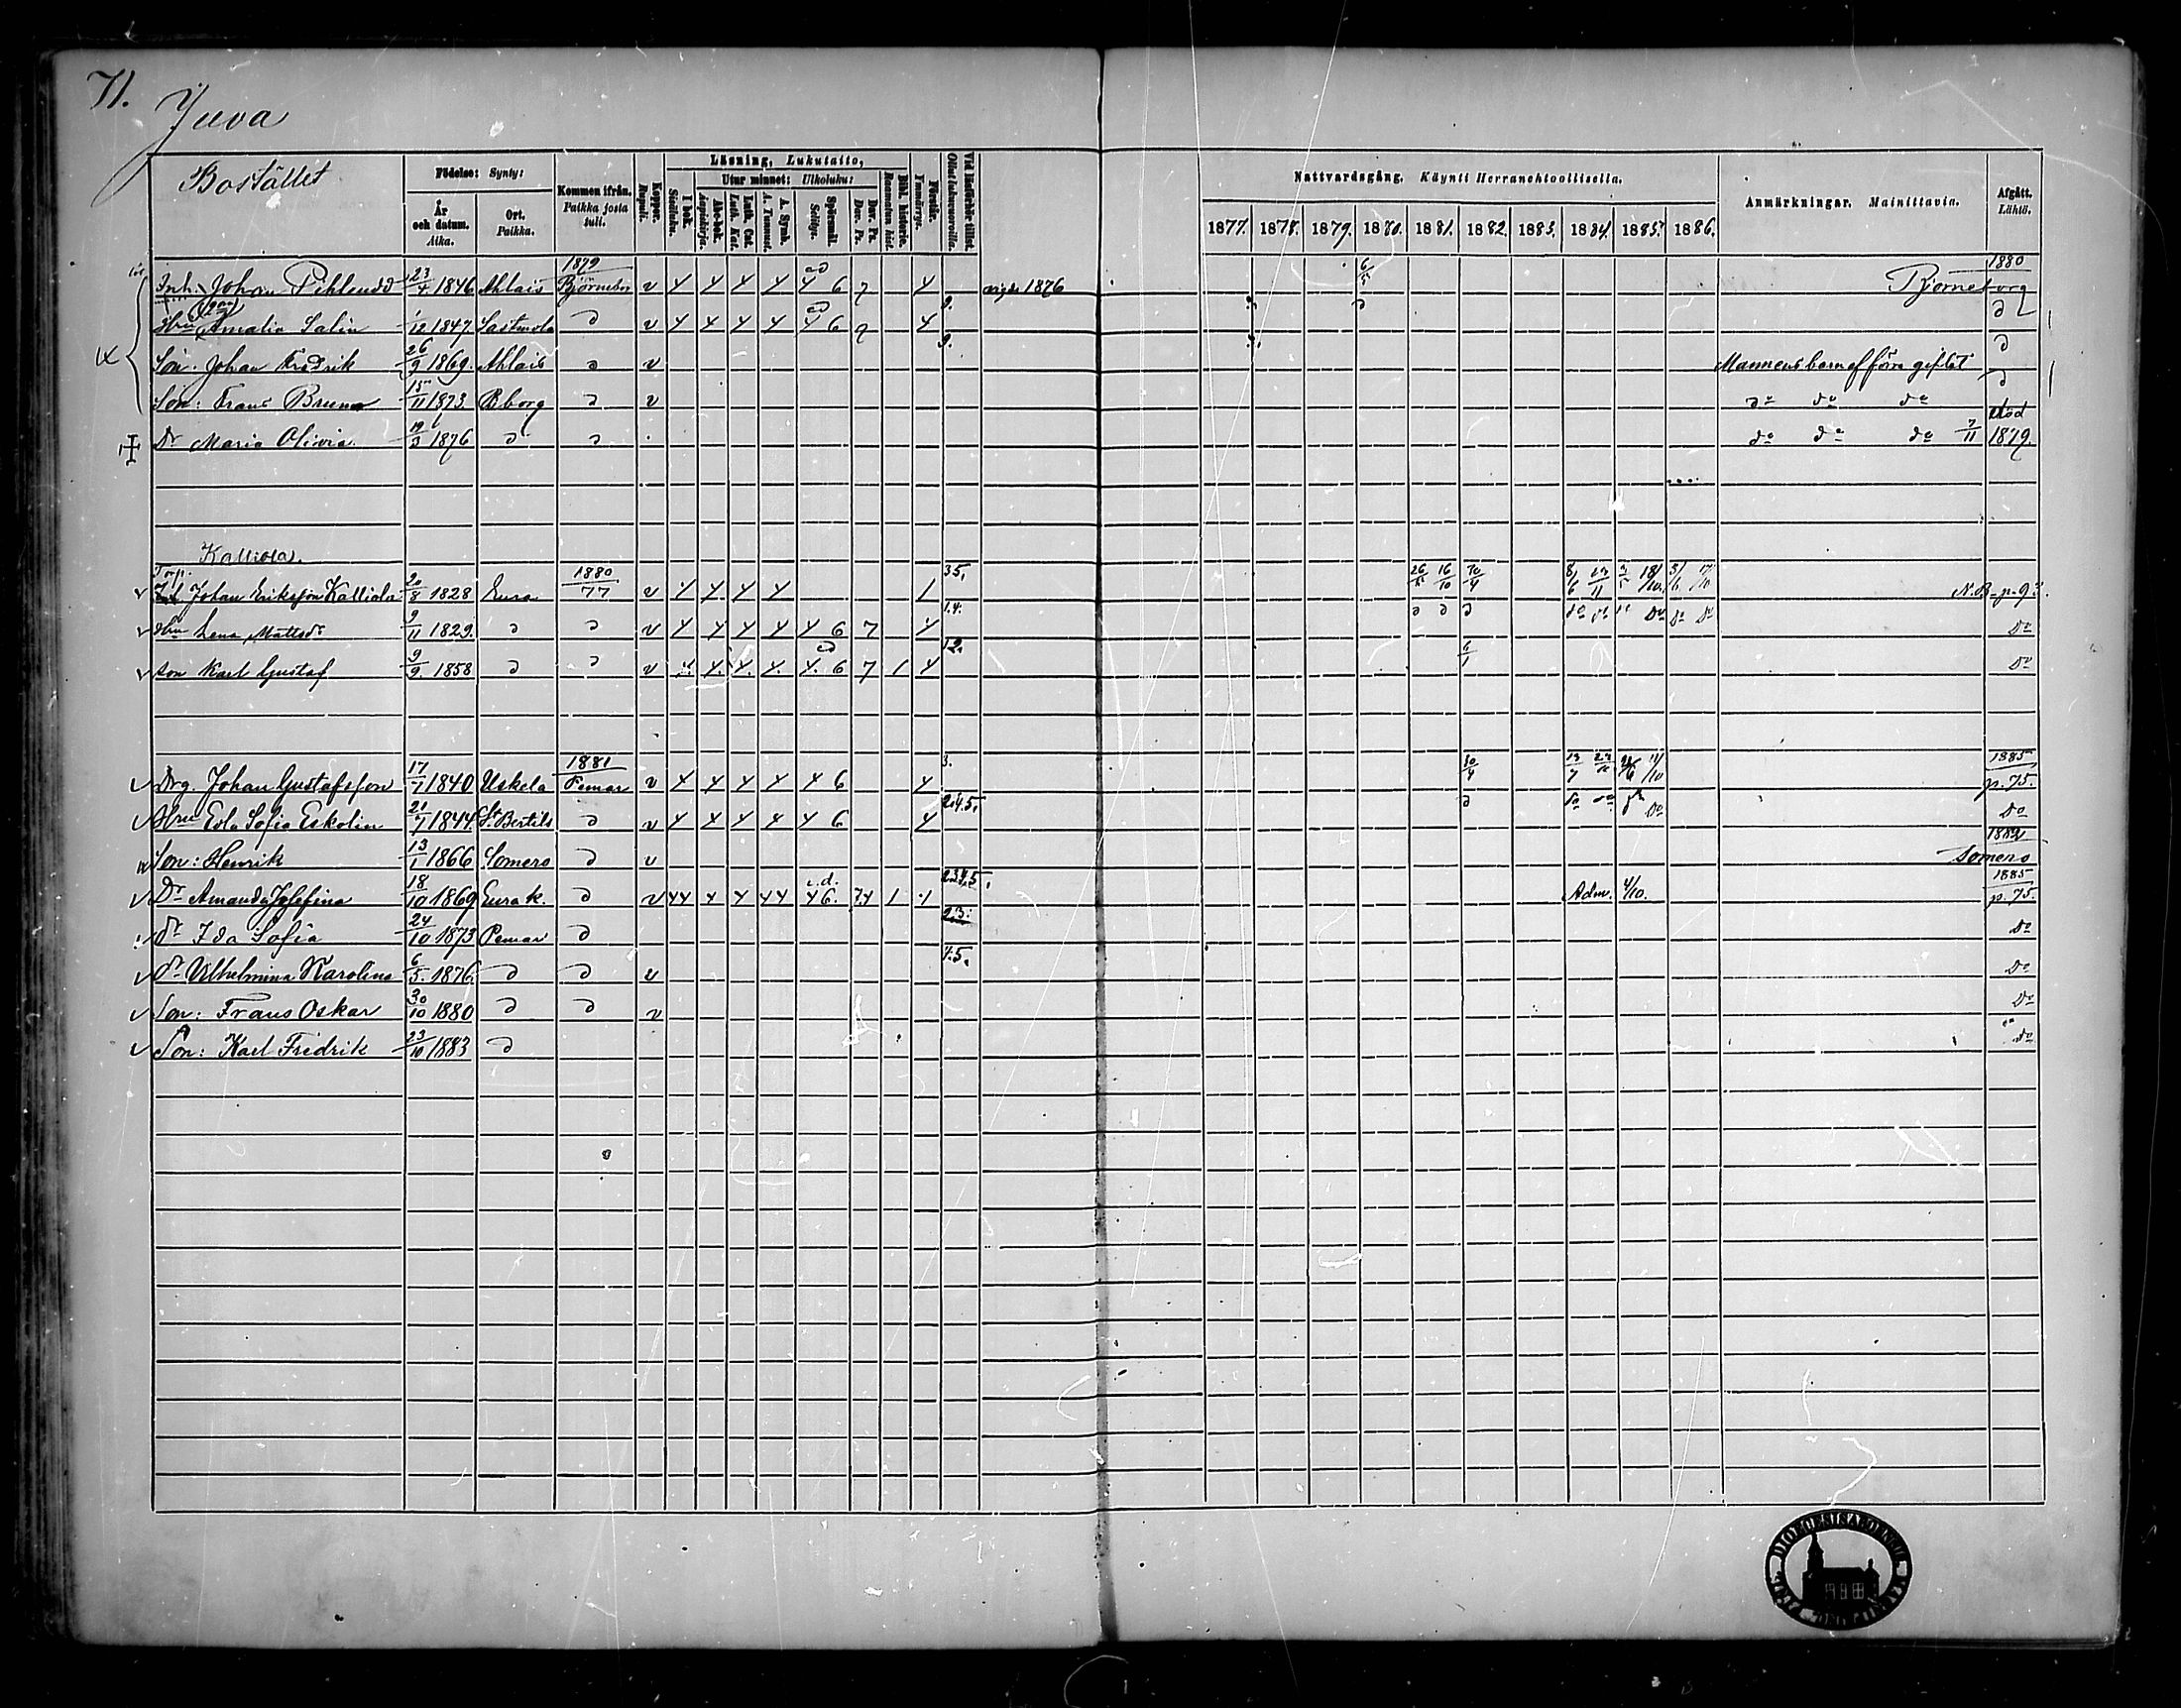 71.
Juva
Bostället
Födelse: Synty:
År och datum. Aika.
Ort. Paikka.
Kommen ifrån. Paikka josta tuli.
Koppor. Rupuli.
Läsning, Lukutaito,
I bok. Sisäluku.
Utur minnet: Ulkoluku:
Abc-bok. Aapiskirja.
Luth. Cat. Luth. Kat.
A. Symb. A. Tunnust.
Spörsmål. Selitys.
Dav. Ps. Dav. Ps.
Bibl. historie. Raamatun hist
Förstår. Ymmärrys.
Vid läsförhör tillst. Ollut lukuvuoroilla.
Nattvardsgång. Käynti Herranehtoollisella.
1877. 1878. 1879. 1880. 1881. 1882. 1883. 1884. 1885. 1886.
Anmärkningar. Mainittavia.
Afgått. Lähtö.
Inh. Johan Pihlsudd 23/4 1846 Ahlais 1879 Björneborg v 4 4 4 4 4 6 7 4 vigda 1876 1880 Björneborg
Hru Amalia Salin 1/12 1847. Sastmola d v 4 4 4 4 4 6 7 4 9. d d
Son. Johan Fredrik 26/9 1869. Ahlais d v 9. Mannens barn af förra giftet d
Son: Frans Bruno 15/11 1873. Bborg d v do do do d
Dr Maria Olivia. 19/2 1876 d d do do do 7/11 död 1879.
Kalliola.
Torp. Johan Eriksson Kalliola 20/8 1828 Eura 1880/77 v 4 4 4 4 1 35, 26/5 16/10 30/4 N.B. p. 93.
Hru Lena Mattsdr 9/11 1829. d d v 4 4 4 4 4 6 7 4 1.4. d d d do do do do do do
Son Karl Gustaf 9/9. 1858 d d v 4. 4. 4. 4. 6 7 1 4 12. 6/1 do
Drg. Johan Gustafsson 17/1 1840 Uskela 1881 Pemar v 4 4 4 4 4 6 4 3. 30/4 13/7 1885 p. 75.
Hru Eola Sofia Eskolin 21/7 1844. St. Bertils d v 4 4 4 4 4 6 4 2.4.5. d do do do do do
Son: Henrik 13/1 1866 Somero d v 1882 Somero
Dr Amanda Josefina 18/10 1869 Eurak. d v 44 4 4 44 46. 7.4 1 4 2345. Adm. 4/10. 1885 p. 75.
dr Ida Sofia 24/10 1873 Pemar d 23. do
dr Vilhelmina Karolina 6/5. 1876. d d v 4.5. do
Son: Frans Oskar 30/10 1880 d d v do
Son: Karl Fredrik 23/10 1883 d do